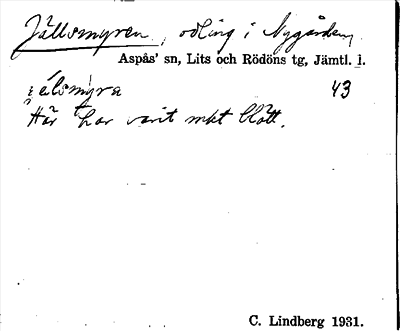 Jällsmyren, odling i Nygården,
Aspås' sn, Lits och Rödöns tg, Jämtl. l.
43
Här har varit mkt blött.
C. Lindberg 1931.